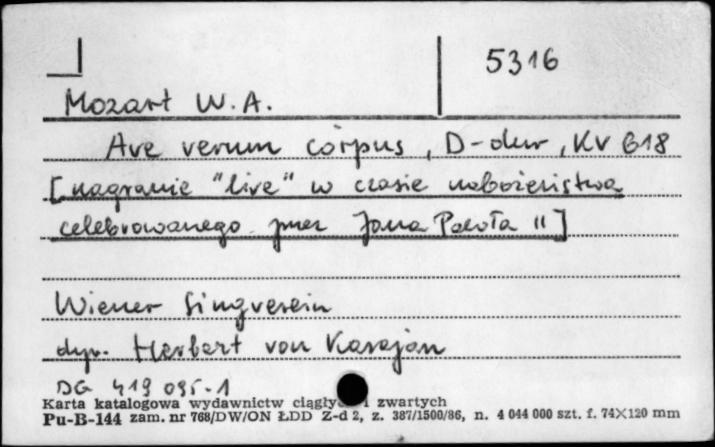 5316
Mozart W.A.
Ave verum corpus, D-dur, KV 618
[nagranie "live" w czasie nabożeństwa
celebrowanego przez Jana Pawła II]
Wiener Singverein
dyr. Herbert von Karajan
DG 419 095-1
Karta katalogowa wydawnictw ciągły i zwartych
Pu-B-144 zam. nr 768/DW/ON ŁDD Z-d 2, z. 387/1500/86, n. 4 044 000 szt. f. 74×120 mm